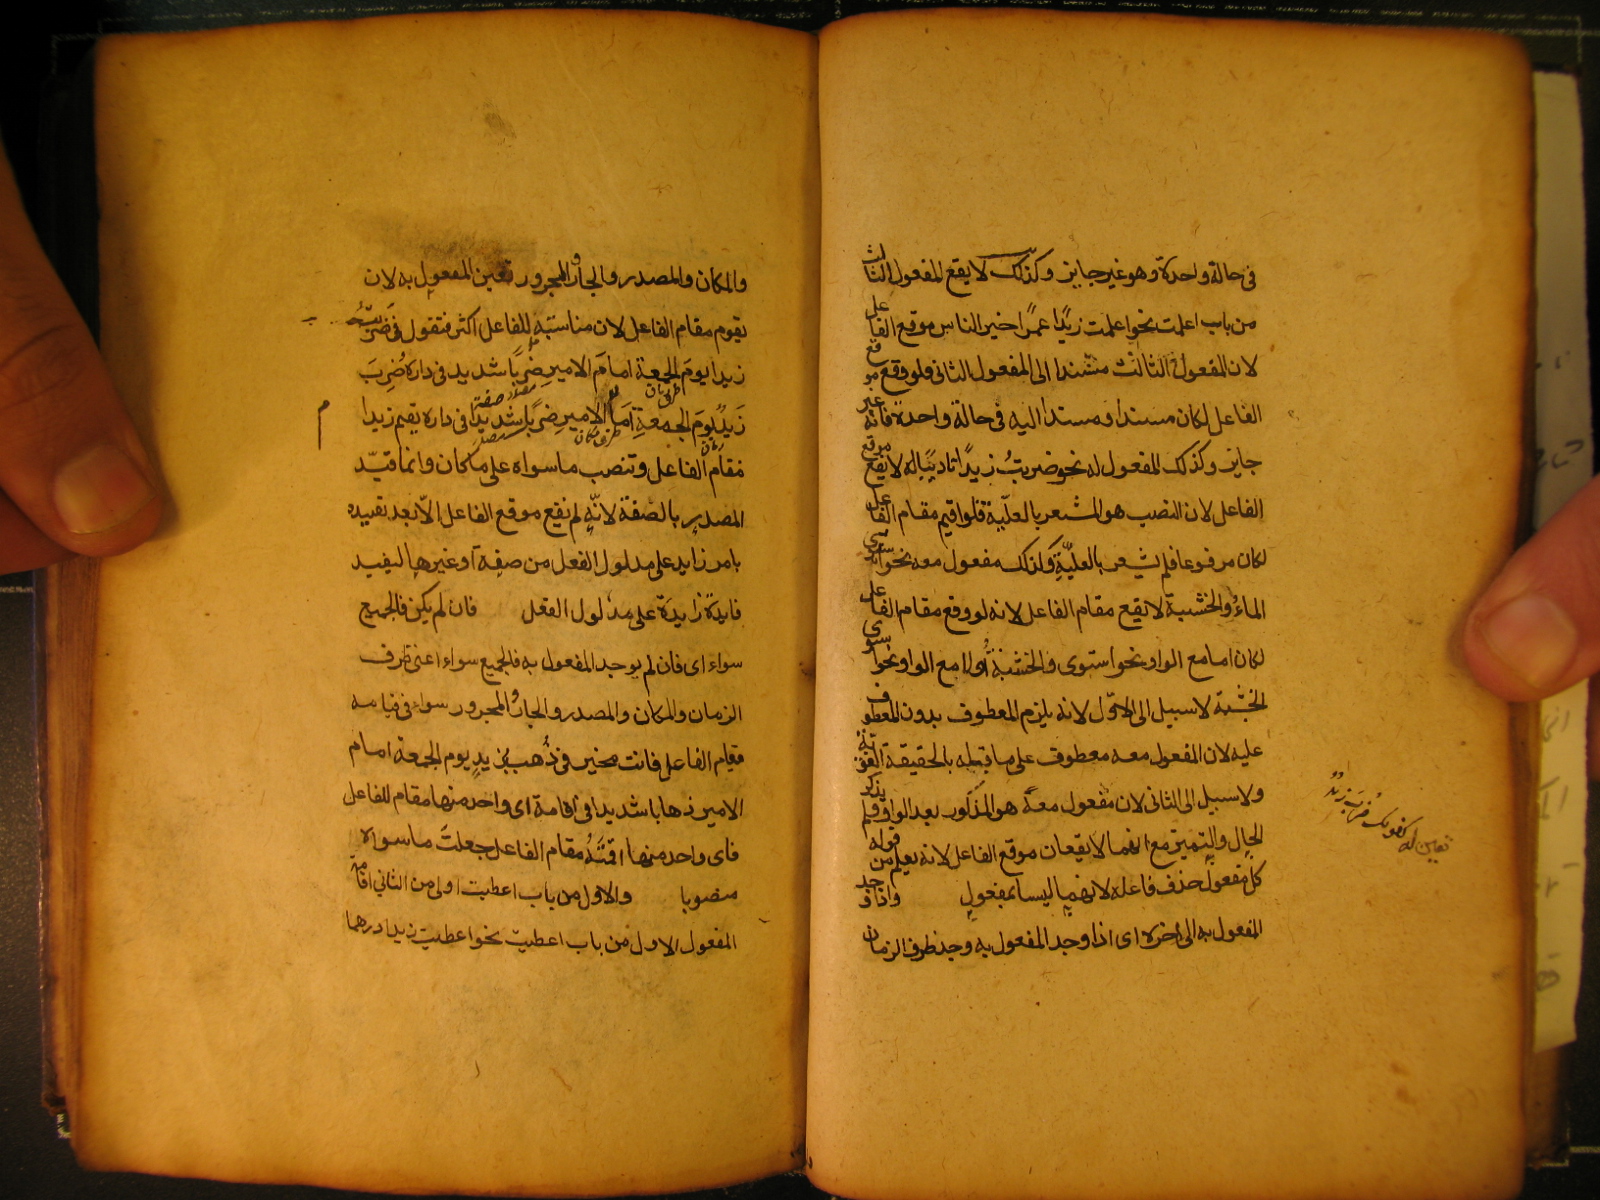 فى حالة واحدة وهو غير جايز وكذلك لا يقع المفعول الثالث
من باب اعلمت نحو اعلمت زيدًا عمرًا خير الناس موقع الفاعل
لان المفعول الثالث مسند الى المفعول الثانى فلو وقع موقع
الفاعل لكان مسندا ومسندا اليه فى حالة واحدة فانه غير
جايز وكذلك المفعول له نحو ضربتُ زيدًا تاديبًا له لا يقع موقع
الفاعل لان النصب هو المشعر بالعلّية فلو اقيم مقام الفاعل
لكان مرفوعا فلم يشعر بالعليّة وكذلك مفعول معه نحو استوى
الماءُ والخشبة لا يقع مقام الفاعل لانه لو وقع مقام الفاعل
لكان اما مع الواو نحو استوى والخشبةُ او لا مع الواو نحو استوى
الخشبة لا سبيل الى الاوّل لانه يلزم المعطوف بدون المعطوف
عليه لان المفعول معه معطوف على ما قبله بالحقيقة
ولا سبيل الى الثانى لان مفعول معه هو المذكور بعد الواو ولم يذكر
الحال والتميز مع انهما لا يقعان موقع الفاعل لانه يعلم من قوله
كل مفعول حذف فاعله لانهما ليسا بمفعول واذا وجد
المفعول به الى اخره اى اذا وجد المفعول به وجد ظرف الزمان
تعين له كقولك ضُرِبَ زيدٌ
والمكان والمصدر والجار والمجرور تعين المفعول به لان
يقوم مقام الفاعل لان مناسبته للفاعل اكثر فتقول فى ضربتُ
زيدا يومَ الجمعة امامَ الامير ضربًا شديد فى داره ضُرِبَ
زيدٌ يومَ الجمعةِ امامَ الامير ضربًا شديدًا فى داره يقيم زيدا
ظرف زمان
ظرف مكان
مصدر
صفة
مقام الفاعل وتنصب ما سواه على ما كان وانما قيّد
المصدر بالصفة لانّه لم يقع موقع الفاعل الّا بعد تقييده
بامر زايد على مدلول الفعل من صفة او غيرها ليفيد
فايدة زايدة على مدلول الفعل فان لم يكن فالجميع
سواء اى فان لم يوجد المفعول به فالجميع سواء اعنى ظرف
الزمان والمكان والمصدر والجار والمجرور سواء فى قيامه
مقام الفاعل فانت مخير فى ذُهب بزيدٍ يوم الجمعة امام
الامير ذهابا شديدا فى اقامة اى واحد منها مقام الفاعل
فاى واحد منها اقمتَهُ مقام الفاعل جعلتَ ما سواه
منصوبا والاول من باب اعطيت اولى من الثانى اقامة
المفعول الاول من باب اعطيت نحو اعطيت زيدا درهما